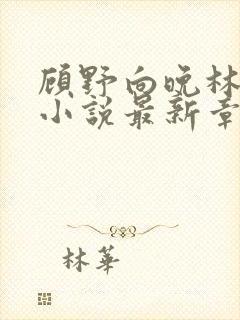 顾野向晚林
小说最新章
林華